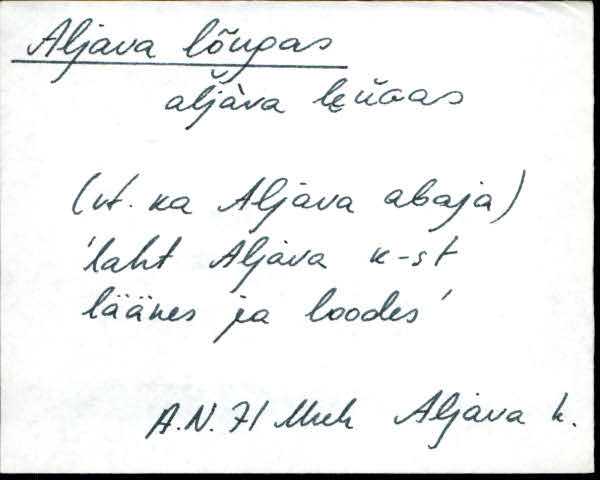 Aljava lõugas
aljàva
(vt. ka Aljava abaja)
'laht Aljava k-st
läänes ja loodes'
A.N. 71 Muh Aljava k.